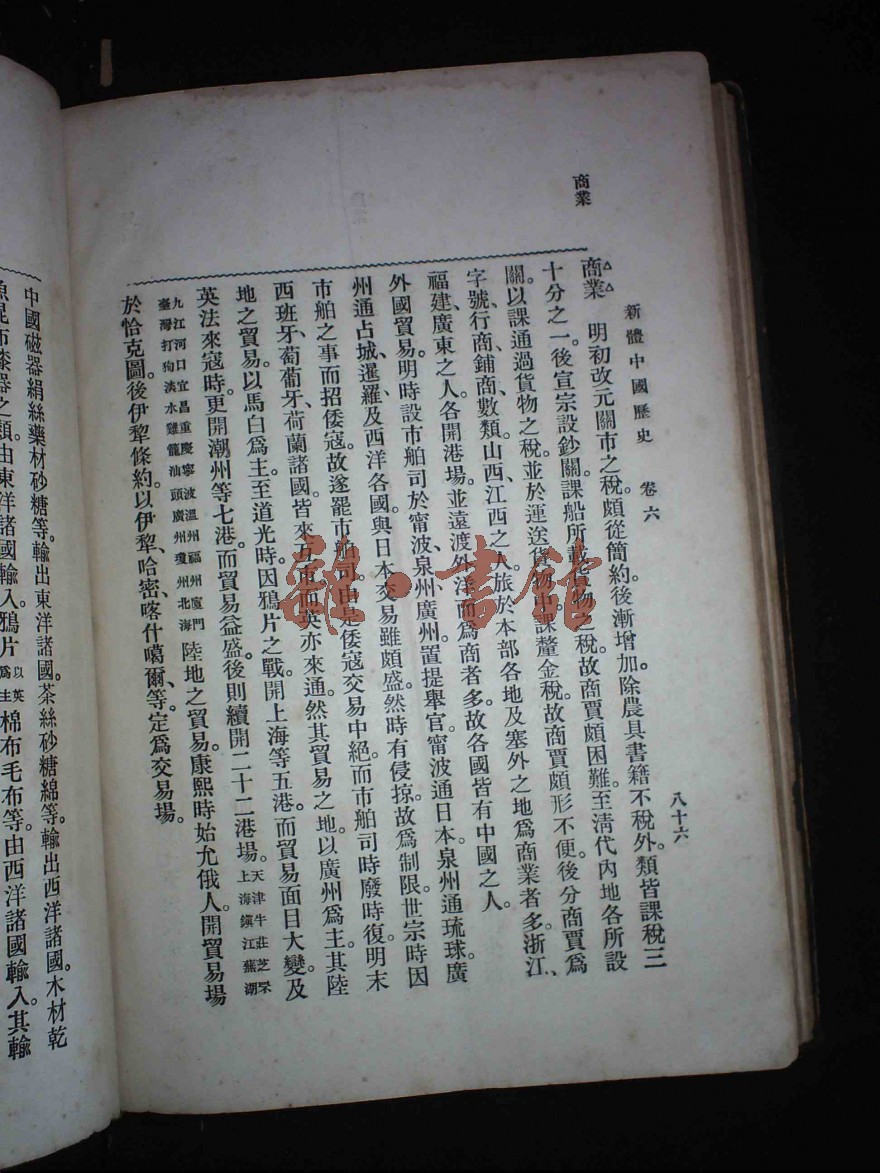 新體中國歷史 卷六 八十六
商業
商業 明初改元關市之稅。頗從簡約。後漸增加。除農具書籍不稅外。類皆課稅三
十分之一。後宣宗設鈔關。課船所載貨物之稅。故商賈頗困難。至清代內地各所設
關。以課通過貨物之稅。並於運送貨物中。課釐金稅。故商賈頗形不便。後分商賈爲
字號、行商、鋪商數類。山西江西之人。旅於本部各地及塞外之地爲商業者多。浙江、
福建、廣東之人。各開港場。並遠渡外洋而爲商者多。故各國皆有中國之人。
外國貿易。明時設市舶司於甯波、泉州、廣州。置提舉官。甯波通日本。泉州通琉球。廣
州通占城、暹羅及西洋各國。與日本交易雖頗盛。然時有侵掠。故爲制限。世宗時因
市舶之事而招倭寇。故遂罷市舶司。由是倭寇交易中絕。而市舶司時廢時復。明末
西班牙、葡萄牙、荷蘭諸國。皆來互市。而英亦來通。然其貿易之地。以廣州爲主。其陸
地之貿易。以馬白爲主。至道光時。因鴉片之戰。開上海等五港。而貿易面目大變。及
英法來寇時。更開潮州等七港。而貿易益盛。後則續開二十二港場。天津牛莊芝罘上海鎮江蕪湖
九江河口宜昌重慶寧波溫州福州廈門臺灣打狗淡水雞籠汕頭廣州瓊州北海陸地之貿易。康熙時始允俄人。開貿易場
於恰克圖。後伊犂條約。以伊犂、哈密、喀什噶爾等。定爲交易場。
中國磁器絹絲藥材砂糖等。輸出東洋諸國。茶絲砂糖綿等。輸出西洋諸國。木材乾
魚昆布漆器之類。由東洋諸國輸入。鴉片以英爲主棉布毛布等。由西洋諸國輸入。其輸
龍·書館